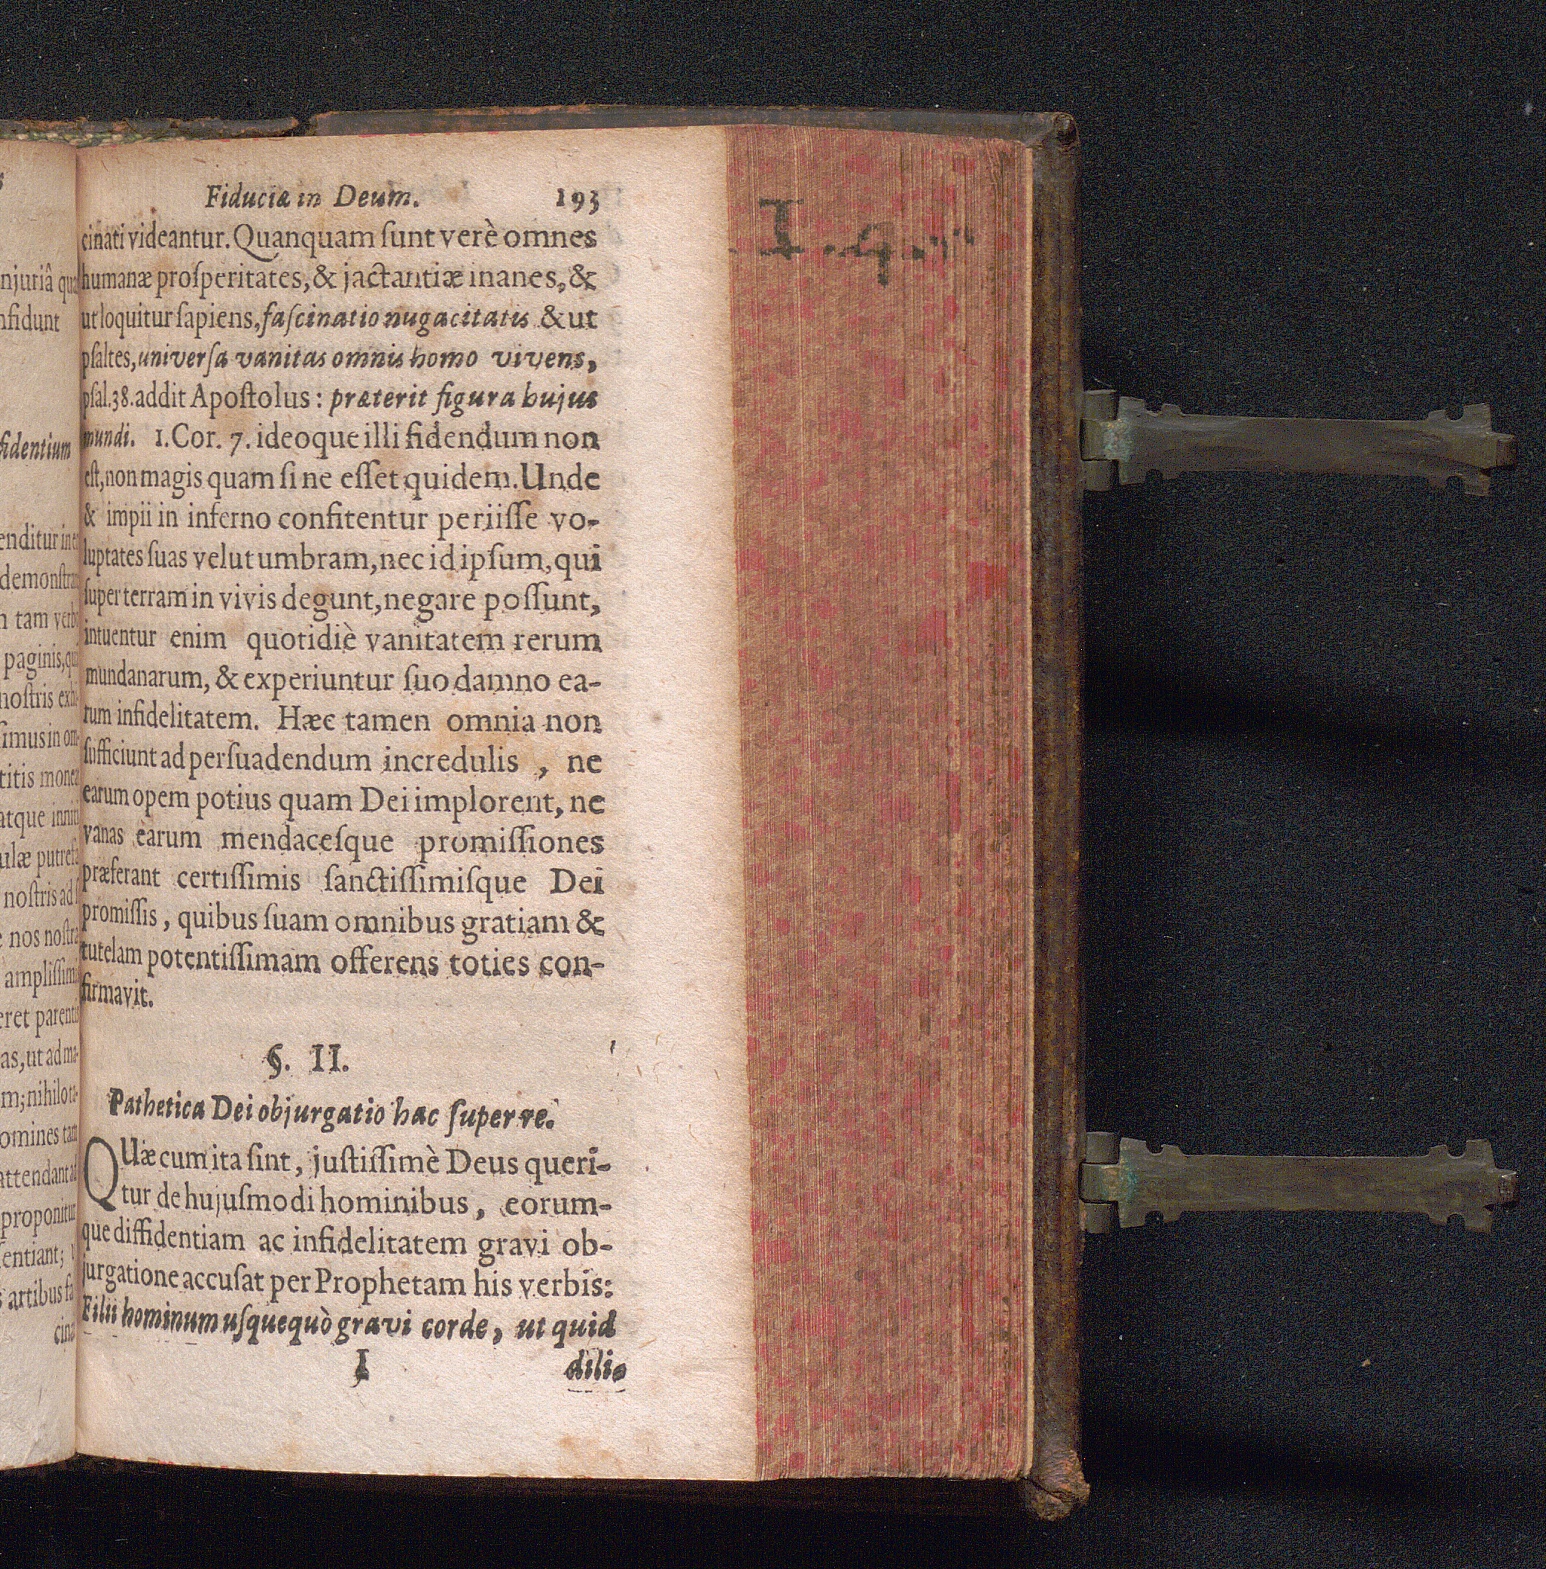 njuriâ qua
nfidunt
fidentium
enditur in
demonstra
tam verb
paginis, qu
nostris exh
simus in om
titis mone
atque inni
ulæ putres
nostris ad
nos nostra
amplissim
eret parent
as, ut ad ma-
m; nihilo
omines tam
attendant
proponitur
sentiant;
artibus fa
cina
Fiduciæ in Deum. 193
cinati videantur. Quanquam sunt verè omnes
humanæ prosperitates, & jactantiæ inanes, &
ut loquitur sapiens, fascinatio nugacitatis & ut
psaltes, universa vanitas omnis homo vivens,
psal. 38. addit Apostolus: præterit figura hujus
mundi. 1. Cor. 7. ideoque illi fidendum non
est, non magis quam si ne esset quidem. Unde
& impii in inferno confitentur periisse vo-
luptates suas velut umbram, nec id ipsum, qui
super terram in vivis degunt, negare possunt,
intuentur enim quotidiè vanitatem rerum
mundanarum, & experiuntur suo damno ea-
rum infidelitatem. Hæc tamen omnia non
sufficiunt ad persuadendum incredulis, ne
earum opem potius quam Dei implorent, ne
vanas earum mendacesque promissiones
præferant certissimis sanctissimisque Dei
promissis, quibus suam omnibus gratiam &
tutelam potentissimam offerens toties con-
firmavit.
§. II.
Pathetica Dei objurgatio hac super re.
QUæ cum ita sint, justissimè Deus queri-
tur de hujusmodi hominibus, eorum-
que diffidentiam ac infidelitatem gravi ob-
jurgatione accusat per Prophetam his verbis:
Filii hominum usquequò gravi corde, ut quid
I dili-